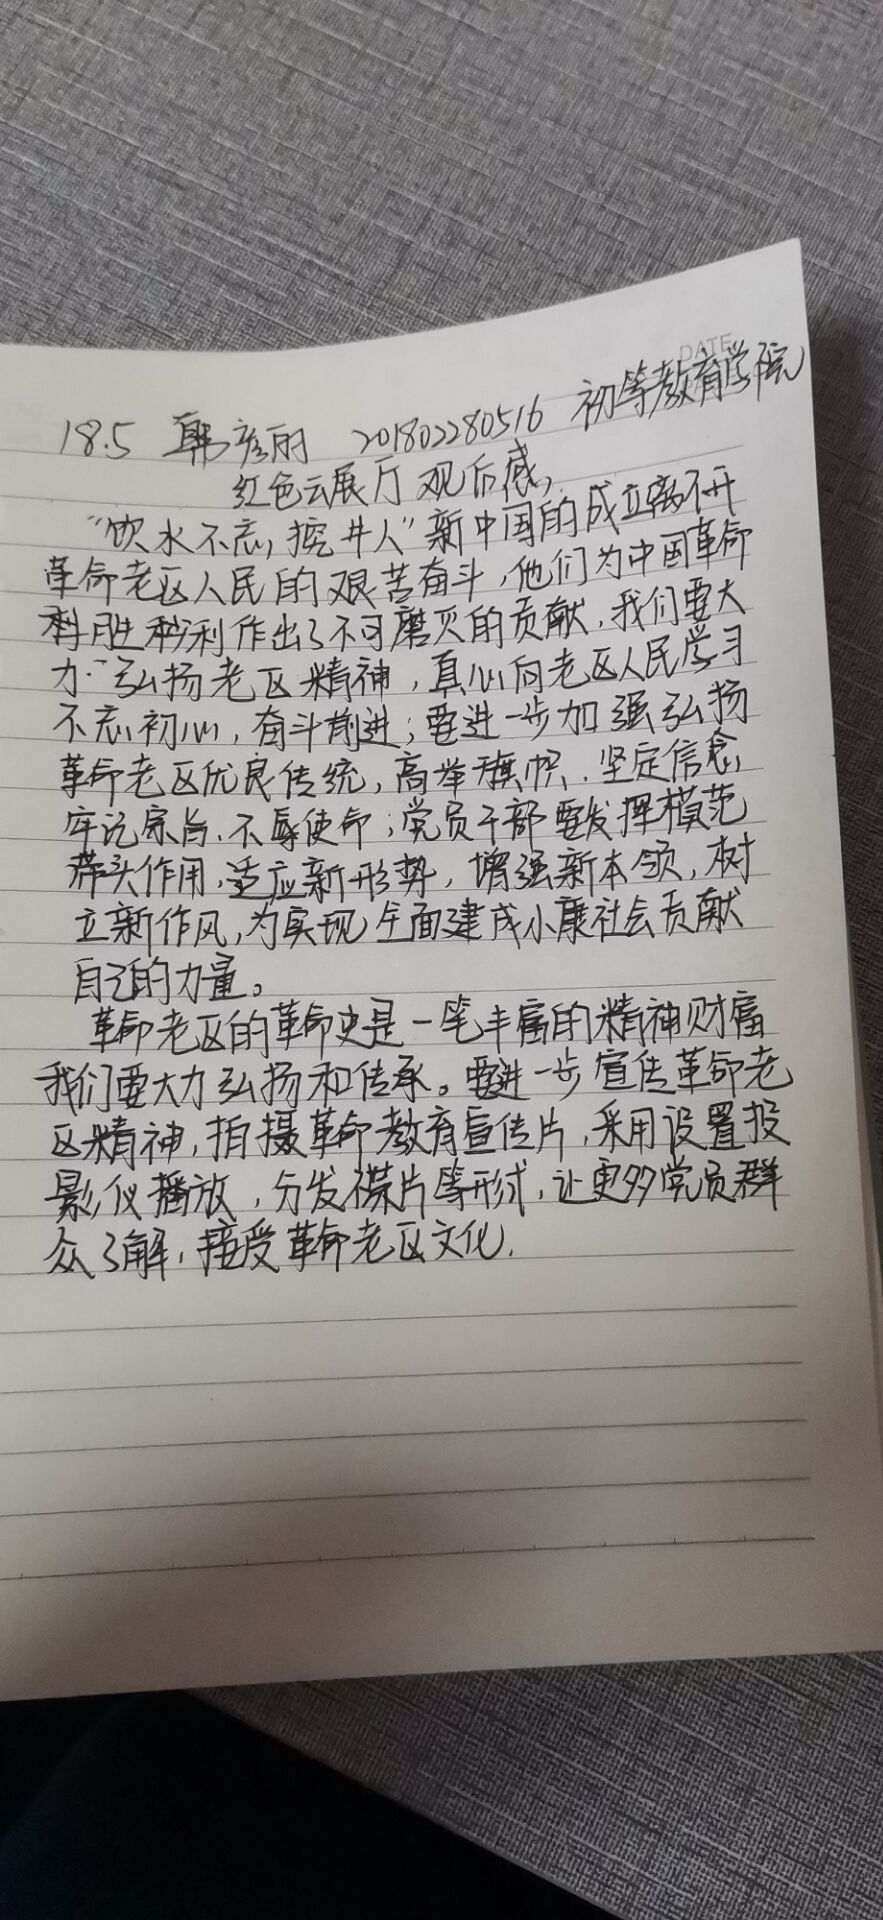 DATE
18.5 韩彦丽 201802280516 初等教育学院
红色云展厅观后感,
“饮水不忘,挖井人”新中国的成立离不开
革命老区人民的艰苦奋斗,他们为中国革命
胜利作出了不可磨灭的贡献,我们要大
力弘扬老区精神,真心向老区人民学习
不忘初心,奋斗前进;要进一步加强弘扬
革命老区优良传统,高举旗帜、坚定信念,
牢记宗旨、不辱使命;党员干部要发挥模范
带头作用,适应新形势,增强新本领,树
立新作风,为实现全面建成小康社会贡献
自己的力量。
革命老区的革命史是一笔丰富的精神财富
我们要大力弘扬和传承。要进一步宣传革命老
区精神,拍摄革命教育宣传片,采用设置投
影仪播放,分发碟片等形式,让更多党员群
众了解,接受革命老区文化,